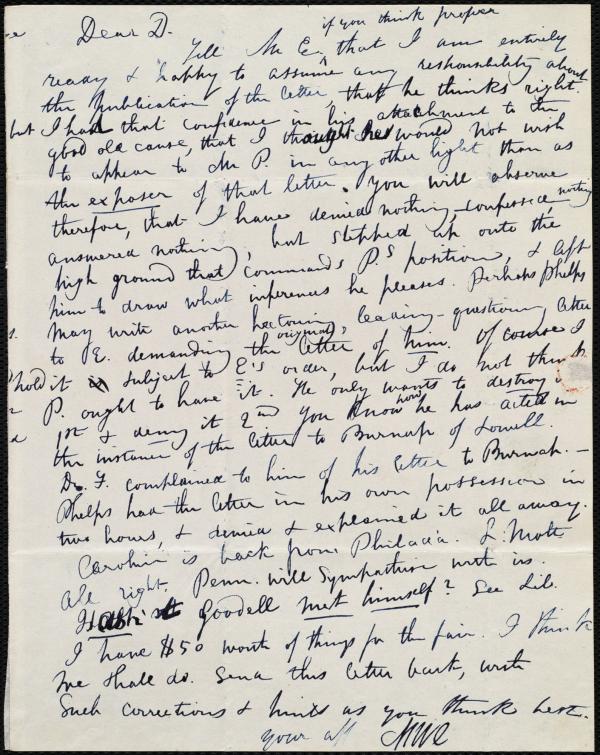 if you think proper
Dear D.
Tell Mr E. that I am entirely
ready & happy to assume any responsibility about
the publication of the letter, that he thinks right.
but I had that confidence in his attachment to the
good old cause, that I thought he would not wish
to appear to Mr P. in any other light than as
the exposer of that letter. You will observe
therefore, that I have denied nothing, confessed nothing
answered nothing, but stepped up onto the
high ground that commands P.s position, & left
him to draw what inferences he pleases. Perhaps Phelps
may write another hectoring, leading-questioning letter
to E. demanding the original letter of him. Of course I
hold it subject to E's order, but I do not think
P. ought to have it. He only wants to destroy it
1st & deny it 2nd You know how he has acted in
the instance of the letter to Burnap of Lowell.
Dr. F. complained to him of his letter to Burnap. –
Phelps had the letter in his own possession in
two hours, & denied & explained it all away.
Caroline is back from Philada. L. Mott
all right. Penn. will sympathise with us.
Goodell met himself? See Lib.
I have $50 worth of things for the fair. I think
we shall do. Send this letter back, with
such corrections & hints as you think best.
your aff MWC